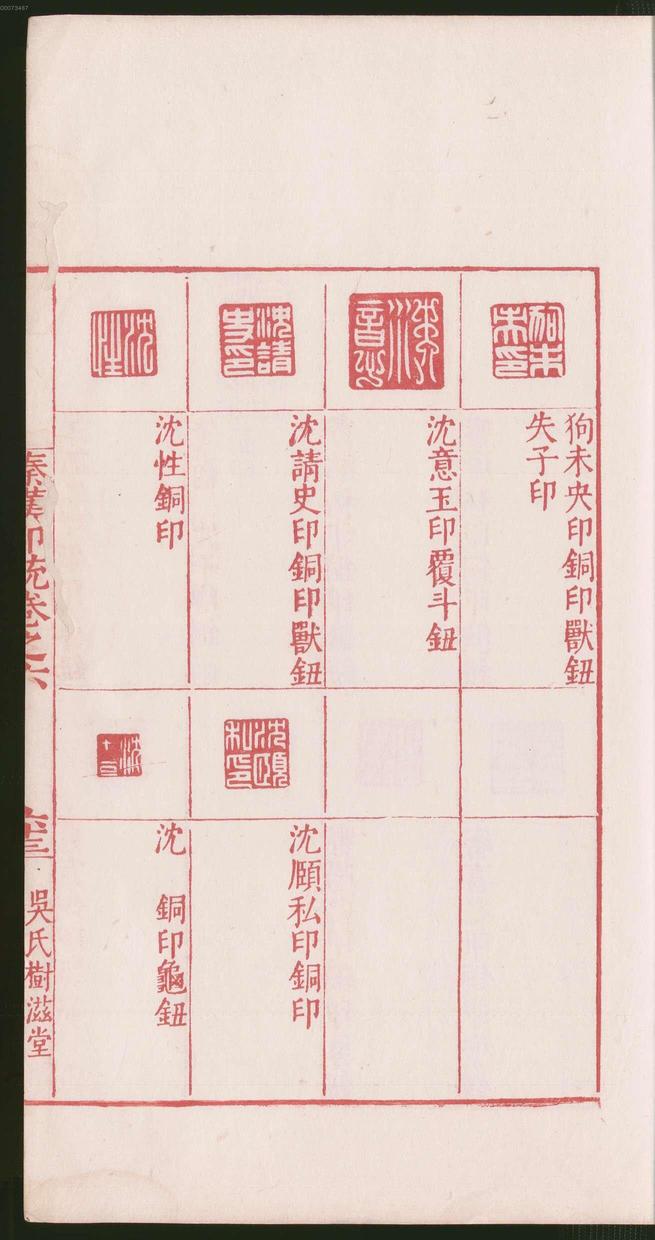 狗未央印銅印獸鈕
失子印
沈意玉印覆斗鈕
沈請史印銅印獸鈕
沈性銅印
沈頤私印銅印
沈 銅印龜鈕
秦漢印統卷之六
六十三
吳氏樹滋堂
00073487